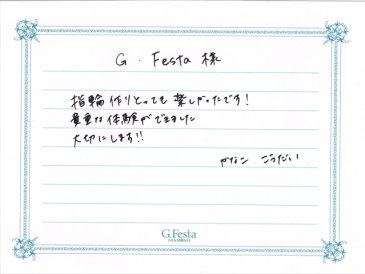 G．Festa 様
指輪作りとっても楽しかったです！
貴重な体験ができました
大切にします!!
かなこ　こうだい
G.Festa
DIAMOND